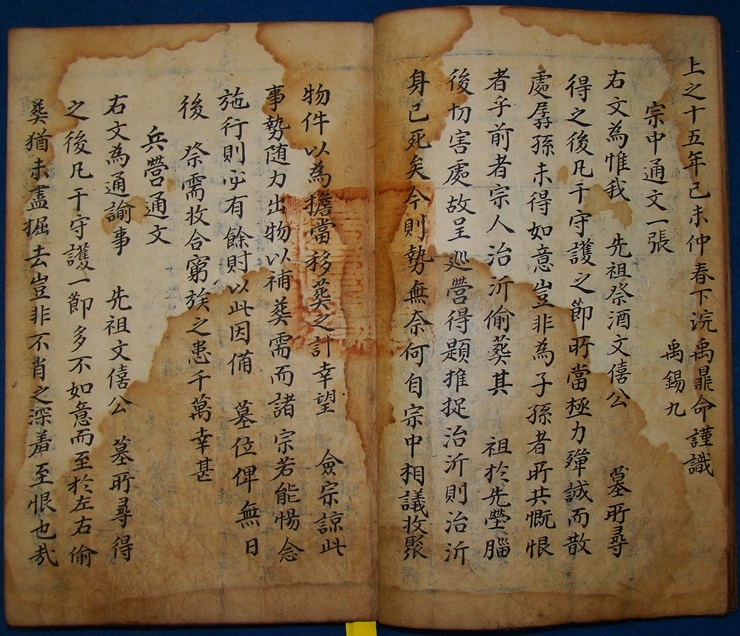 上之十五年己未仲春下浣禹鼎命謹識
禹錫九
宗中通文一張
右文為惟我 先祖祭酒文僖公 墓所尋
得之後凡干守護之節所當極力殫誠而散
處孱孫未得如意豈非為子孫者所共慨恨
者乎前者宗人治沂偷葬其 祖於先塋腦
後切害處故呈巡營得題推捉治沂則治沂
身已死矣今則勢無奈何自宗中相議收聚
物件以為擔當移葬之計幸望 僉宗諒此
事勢随力出物以補葬需而諸宗若能惕念
施行則必有餘財以此因備 墓位俾無日
後 祭需收合窮族之患千萬幸甚
兵營通文
右文為通諭事 先祖文僖公 墓所尋得
之後凡干守護一節多不如意而至於左右偷
葬猶未盡掘去豈非不肖之深羞至恨也哉